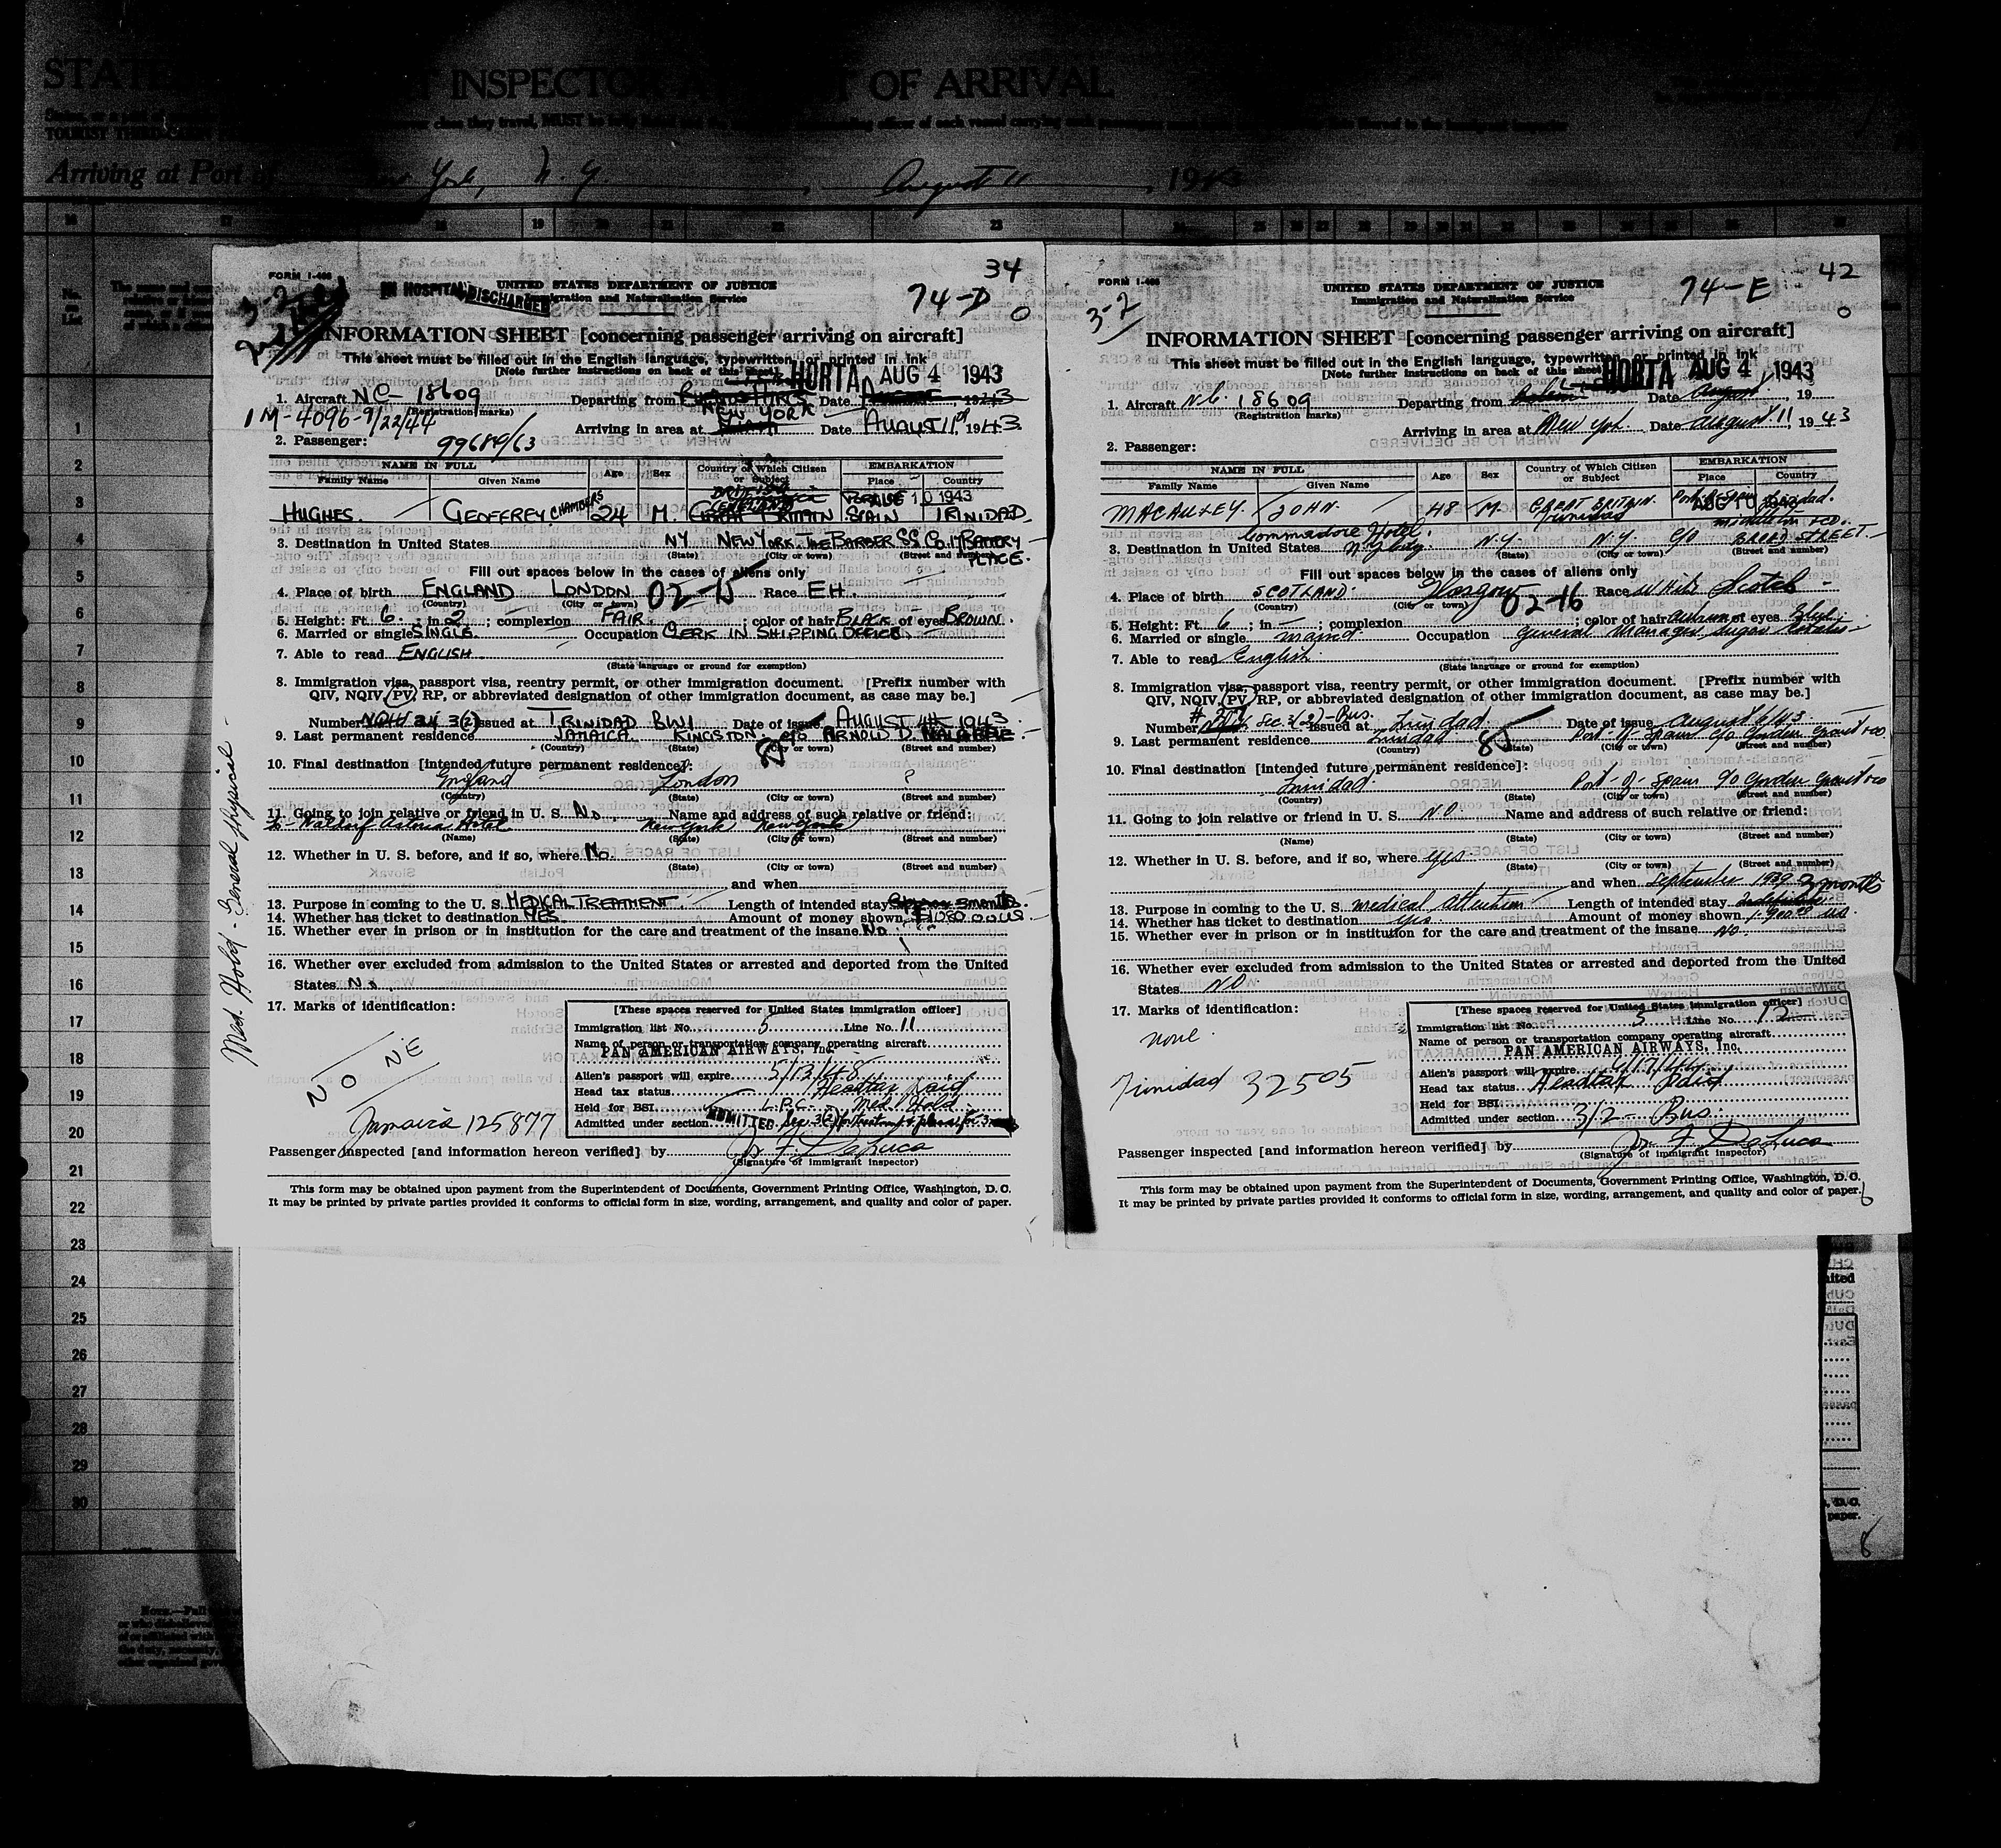 INSPECTOR
OF ARRIVAL
Arriving at Port of New York, N. Y. August 11, 1943
34
FORM I-466
IN HOSPITAL
DISCHARGED
UNITED STATES DEPARTMENT OF JUSTICE
Immigration and Naturalization Service
74-D
0
3-2
INFORMATION SHEET [concerning passenger arriving on aircraft]
This sheet must be filled out in the English language, typewritten or printed in ink
[Note further instructions on back of this sheet]
HORTA AUG 4 1943
1. Aircraft NC-18609 Departing from Date 1943
(Registration marks)
1M-4096-9/22/44
Arriving in area at NEW YORK Date AUGUST 11th, 1943
2. Passenger: 99689/63
NAME IN FULL Age Sex Country of Which Citizen or Subject EMBARKATION
Family Name Given Name Place Country
HUGHES. GEOFFREY CHAMBERS 24 M. GREAT BRITAIN SPAIN TRINIDAD
3. Destination in United States NY NEW YORK THE BARBER SS Co. 17 BATTERY PLACE.
(State) (City or town) (Street and number)
Fill out spaces below in the cases of aliens only
4. Place of birth ENGLAND LONDON 02-15 Race EH.
(Country) (City or town)
5. Height: Ft. 6.; in 2; complexion FAIR; color of hair BLACK of eyes BROWN.
6. Married or single SINGLE. Occupation CLERK IN SHIPPING OFFICE.
7. Able to read ENGLISH
(State language or ground for exemption)
8. Immigration visa, passport visa, reentry permit, or other immigration document. [Prefix number with
QIV, NQIV, PV, RP, or abbreviated designation of other immigration document, as case may be.]
Number 3(2) Issued at TRINIDAD BWI Date of issue AUGUST 4th 1943
9. Last permanent residence JAMAICA. KINGSTON. c/o ARNOLD D.
(Country) (State) (City or town) (Street and number)
10. Final destination [intended future permanent residence]:
England London ?
(Country) (State) (City or town) (Street and number)
11. Going to join relative or friend in U. S. No. Name and address of such relative or friend:
to- Waldorf Astoria Hotel New York New York
(Name) (State) (City or town) (Street and number)
12. Whether in U. S. before, and if so, where No.
(State) (City or town) (Street and number)
and when
13. Purpose in coming to the U. S. MEDICAL TREATMENT. Length of intended stay 3 months.
14. Whether has ticket to destination YES. Amount of money shown $1080.00 US
15. Whether ever in prison or in institution for the care and treatment of the insane No
16. Whether ever excluded from admission to the United States or arrested and deported from the United
States No.
17. Marks of identification:
NONE
Jamaica 125877
Med. Hold - General physical -
[These spaces reserved for United States immigration officer]
Immigration list No. 5 Line No. 11
Name of person or transportation company operating aircraft
PAN AMERICAN AIRWAYS, Inc.
Alien's passport will expire 5/12/48
Head tax status Headtax paid
Held for BSI L.P.C. - Med. Hold.
Admitted under section ADMITTED Sec. 3(2)
Passenger inspected [and information hereon verified] by F. DeLuca
(Signature of immigrant inspector)
This form may be obtained upon payment from the Superintendent of Documents, Government Printing Office, Washington, D. C.
It may be printed by private parties provided it conforms to official form in size, wording, arrangement, and quality and color of paper.
42
FORM I-466
UNITED STATES DEPARTMENT OF JUSTICE
Immigration and Naturalization Service
74-E
0
3-2
INFORMATION SHEET [concerning passenger arriving on aircraft]
This sheet must be filled out in the English language, typewritten or printed in ink
[Note further instructions on back of this sheet]
HORTA AUG 4 1943
1. Aircraft N.C. 18609 Departing from Date August, 19
(Registration marks)
Arriving in area at New York. Date August 11, 1943
2. Passenger:
NAME IN FULL Age Sex Country of Which Citizen or Subject EMBARKATION
Family Name Given Name Place Country
MACAULEY. JOHN. 48 M. GREAT BRITAIN. Trinidad Port of Spain Trinidad.
AUG 10 1943
3. Destination in United States Commodore Hotel. N.Y. City. N.Y. N.Y. c/o BROAD STREET.
(State) (City or town) (Street and number)
Fill out spaces below in the cases of aliens only
4. Place of birth SCOTLAND. Glasgow 02-16 Race White Scotch
(Country) (City or town)
5. Height: Ft. 6; in -; complexion; color of hair auburn of eyes Blue.
6. Married or single married. Occupation General Manager, Sugar Estates
7. Able to read English.
(State language or ground for exemption)
8. Immigration visa, passport visa, reentry permit, or other immigration document. [Prefix number with
QIV, NQIV, PV, RP, or abbreviated designation of other immigration document, as case may be.]
Number Sec. 3(2)-Bus. issued at Trinidad. Date of issue August 6/43
9. Last permanent residence Trinidad 85 Port-of-Spain c/o Gordon Grant & co
(Country) (State) (City or town) (Street and number)
10. Final destination [intended future permanent residence]:
Trinidad Port-of-Spain c/o Gordon Grant & co
(Country) (State) (City or town) (Street and number)
11. Going to join relative or friend in U. S. NO. Name and address of such relative or friend:
(Name) (State) (City or town) (Street and number)
12. Whether in U. S. before, and if so, where yes.
(State) (City or town) (Street and number)
and when September 1939 2 months
13. Purpose in coming to the U. S. medical attention Length of intended stay indefinite
14. Whether has ticket to destination yes Amount of money shown 1-900.00 us.
15. Whether ever in prison or in institution for the care and treatment of the insane NO.
16. Whether ever excluded from admission to the United States or arrested and deported from the United
States NO
17. Marks of identification:
none.
Trinidad 32505
[These spaces reserved for United States immigration officer]
Immigration list No. 5 Line No. 12
Name of person or transportation company operating aircraft
PAN AMERICAN AIRWAYS, Inc.
Alien's passport will expire 6/17/44
Head tax status Headtax Paid
Held for BSI
Admitted under section 3/2- Bus.
Passenger inspected [and information hereon verified] by F. DeLuca
(Signature of immigrant inspector)
This form may be obtained upon payment from the Superintendent of Documents, Government Printing Office, Washington, D. C.
It may be printed by private parties provided it conforms to official form in size, wording, arrangement, and quality and color of paper.